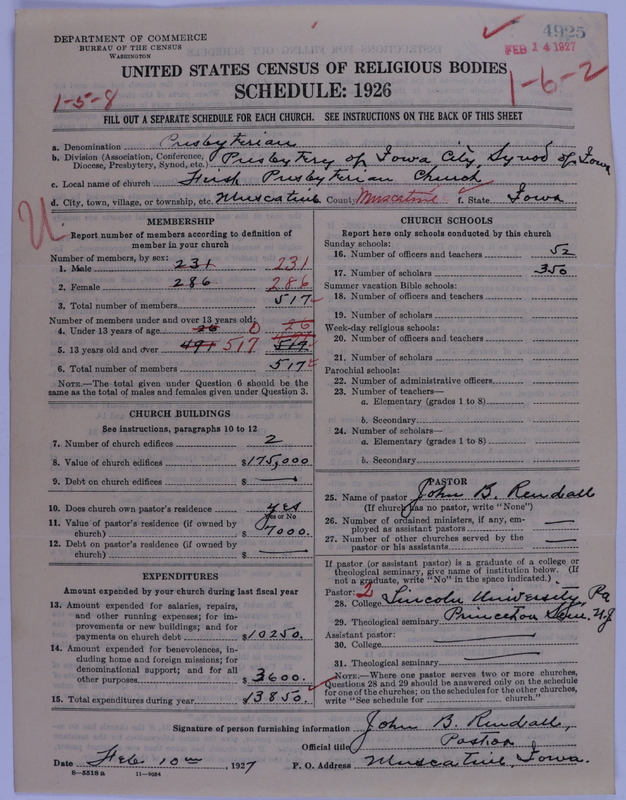 4925
FEB 14 1927
DEPARTMENT OF COMMERCE
BUREAU OF THE CENSUS
WASHINGTON
1-6-2
UNITED STATES CENSUS OF RELIGIOUS BODIES
1-5-8
SCHEDULE: 1926
FILL OUT A SEPARATE SCHEDULE FOR EACH CHURCH. SEE INSTRUCTIONS ON THE BACK OF THIS SHEET
a. Denomination Presbyterian
b. Division (Association, Conference, Diocese, Presbytery, Synod, etc.) Presbytery of Iowa City, Synod of Iowa
c. Local name of church First Presbyterian Church
d. City, town, village, or township, etc. Muscatine County Muscatine f. State Iowa
U
MEMBERSHIP
Report number of members according to definition of
member in your church
Number of members, by sex:
1. Male 231 231
2. Female 286 286
3. Total number of members 517
Number of members under and over 13 years old:
4. Under 13 years of age 26 0 26
5. 13 years old and over 491 517 517
6. Total number of members 517
NOTE.—The total given under Question 6 should be the
same as the total of males and females given under Question 3.
CHURCH BUILDINGS
See instructions, paragraphs 10 to 12
7. Number of church edifices 2
8. Value of church edifices $175,000
9. Debt on church edifices $ —
10. Does church own pastor's residence yes
Yes or No
11. Value of pastor's residence (if owned by
church) $ 7000.
12. Debt on pastor's residence (if owned by
church) $ —
EXPENDITURES
Amount expended by your church during last fiscal year
13. Amount expended for salaries, repairs,
and other running expenses; for im-
provements or new buildings; and for
payments on church debt $10250.
14. Amount expended for benevolences, in-
cluding home and foreign missions; for
denominational support; and for all
other purposes $ 3600.
15. Total expenditures during year $13850.
CHURCH SCHOOLS
Report here only schools conducted by this church
Sunday schools:
16. Number of officers and teachers 52
17. Number of scholars 350
Summer vacation Bible schools:
18. Number of officers and teachers
19. Number of scholars
Week-day religious schools:
20. Number of officers and teachers
21. Number of scholars
Parochial schools:
22. Number of administrative officers
23. Number of teachers—
a. Elementary (grades 1 to 8)
b. Secondary
24. Number of scholars—
a. Elementary (grades 1 to 8)
b. Secondary
PASTOR
25. Name of pastor John B. Rendall
(If church has no pastor, write "None")
26. Number of ordained ministers, if any, em-
ployed as assistant pastors —
27. Number of other churches served by the
pastor or his assistants —
If pastor (or assistant pastor) is a graduate of a college or
theological seminary, give name of institution below. (If
not a graduate, write "No" in the space indicated.)
Pastor: 2
28. College Lincoln University, Pa
29. Theological seminary Princeton Sem. N.J
Assistant pastor:
30. College —
31. Theological seminary —
NOTE.—Where one pastor serves two or more churches,
Questions 28 and 29 should be answered only on the schedule
for one of the churches; on the schedules for the other churches,
write "See schedule for church."
Signature of person furnishing information John B. Rendall,
Official title Pastor
Date Feb 10th, 1927 P. O. Address Muscatine, Iowa.
8—5518 a 11—9084